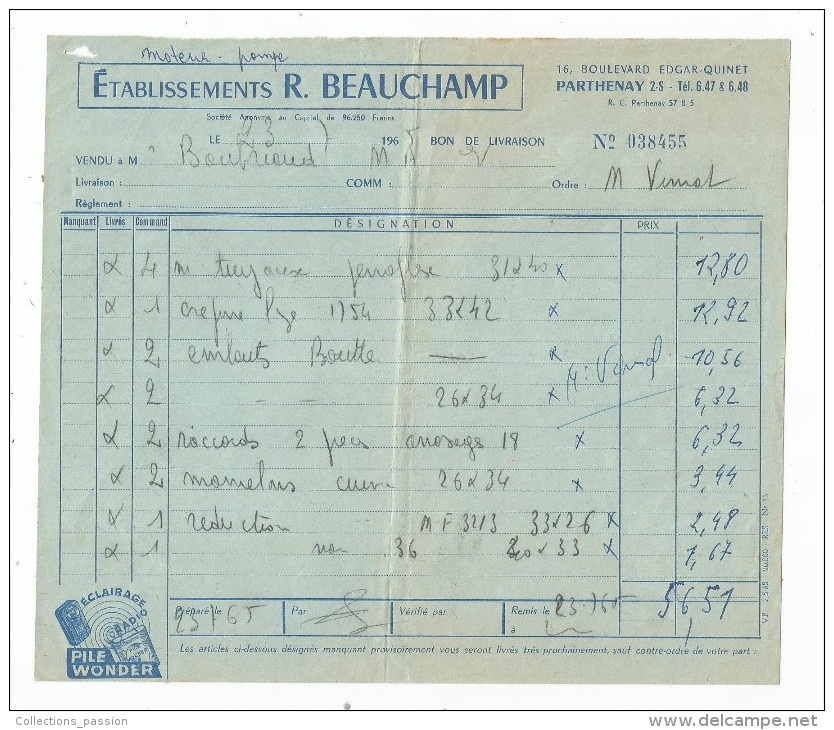 moteur - pompe
ÉTABLISSEMENTS R. BEAUCHAMP
16, BOULEVARD EDGAR-QUINET
PARTHENAY 2-S - Tél. 6.47 & 6.48
R. C. Parthenay 57 B 5
Société Anonyme au Capital de 96.250 Francs
LE 23 1965 BON DE LIVRAISON Nº 038455
VENDU à M
Livraison : COMM : Ordre : M
Règlement :
Manquant Livrés Command DÉSIGNATION PRIX
4 m tuyaux 31x40 x 12,80
1 33x42 x 12,92
2 embouts x 10,56
2 - - 26x34 x 6,32
2 raccords 2 18 x 6,32
2 mamelons cuivre 26x34 x 3,44
1 réduction M-F 3213 33x26 x 2,48
1 36 33 x 1,67
56,51
Préparé le 23/ 65 Par Vérifié par Remis le 23 65
à
Les articles ci-dessous désignés manquant provisoirement vous seront livrés très prochainement, sauf contre-ordre de votre part :
ÉCLAIRAGE
RADIO
PILE
WONDER
Collections_passion
www.delcampe.net